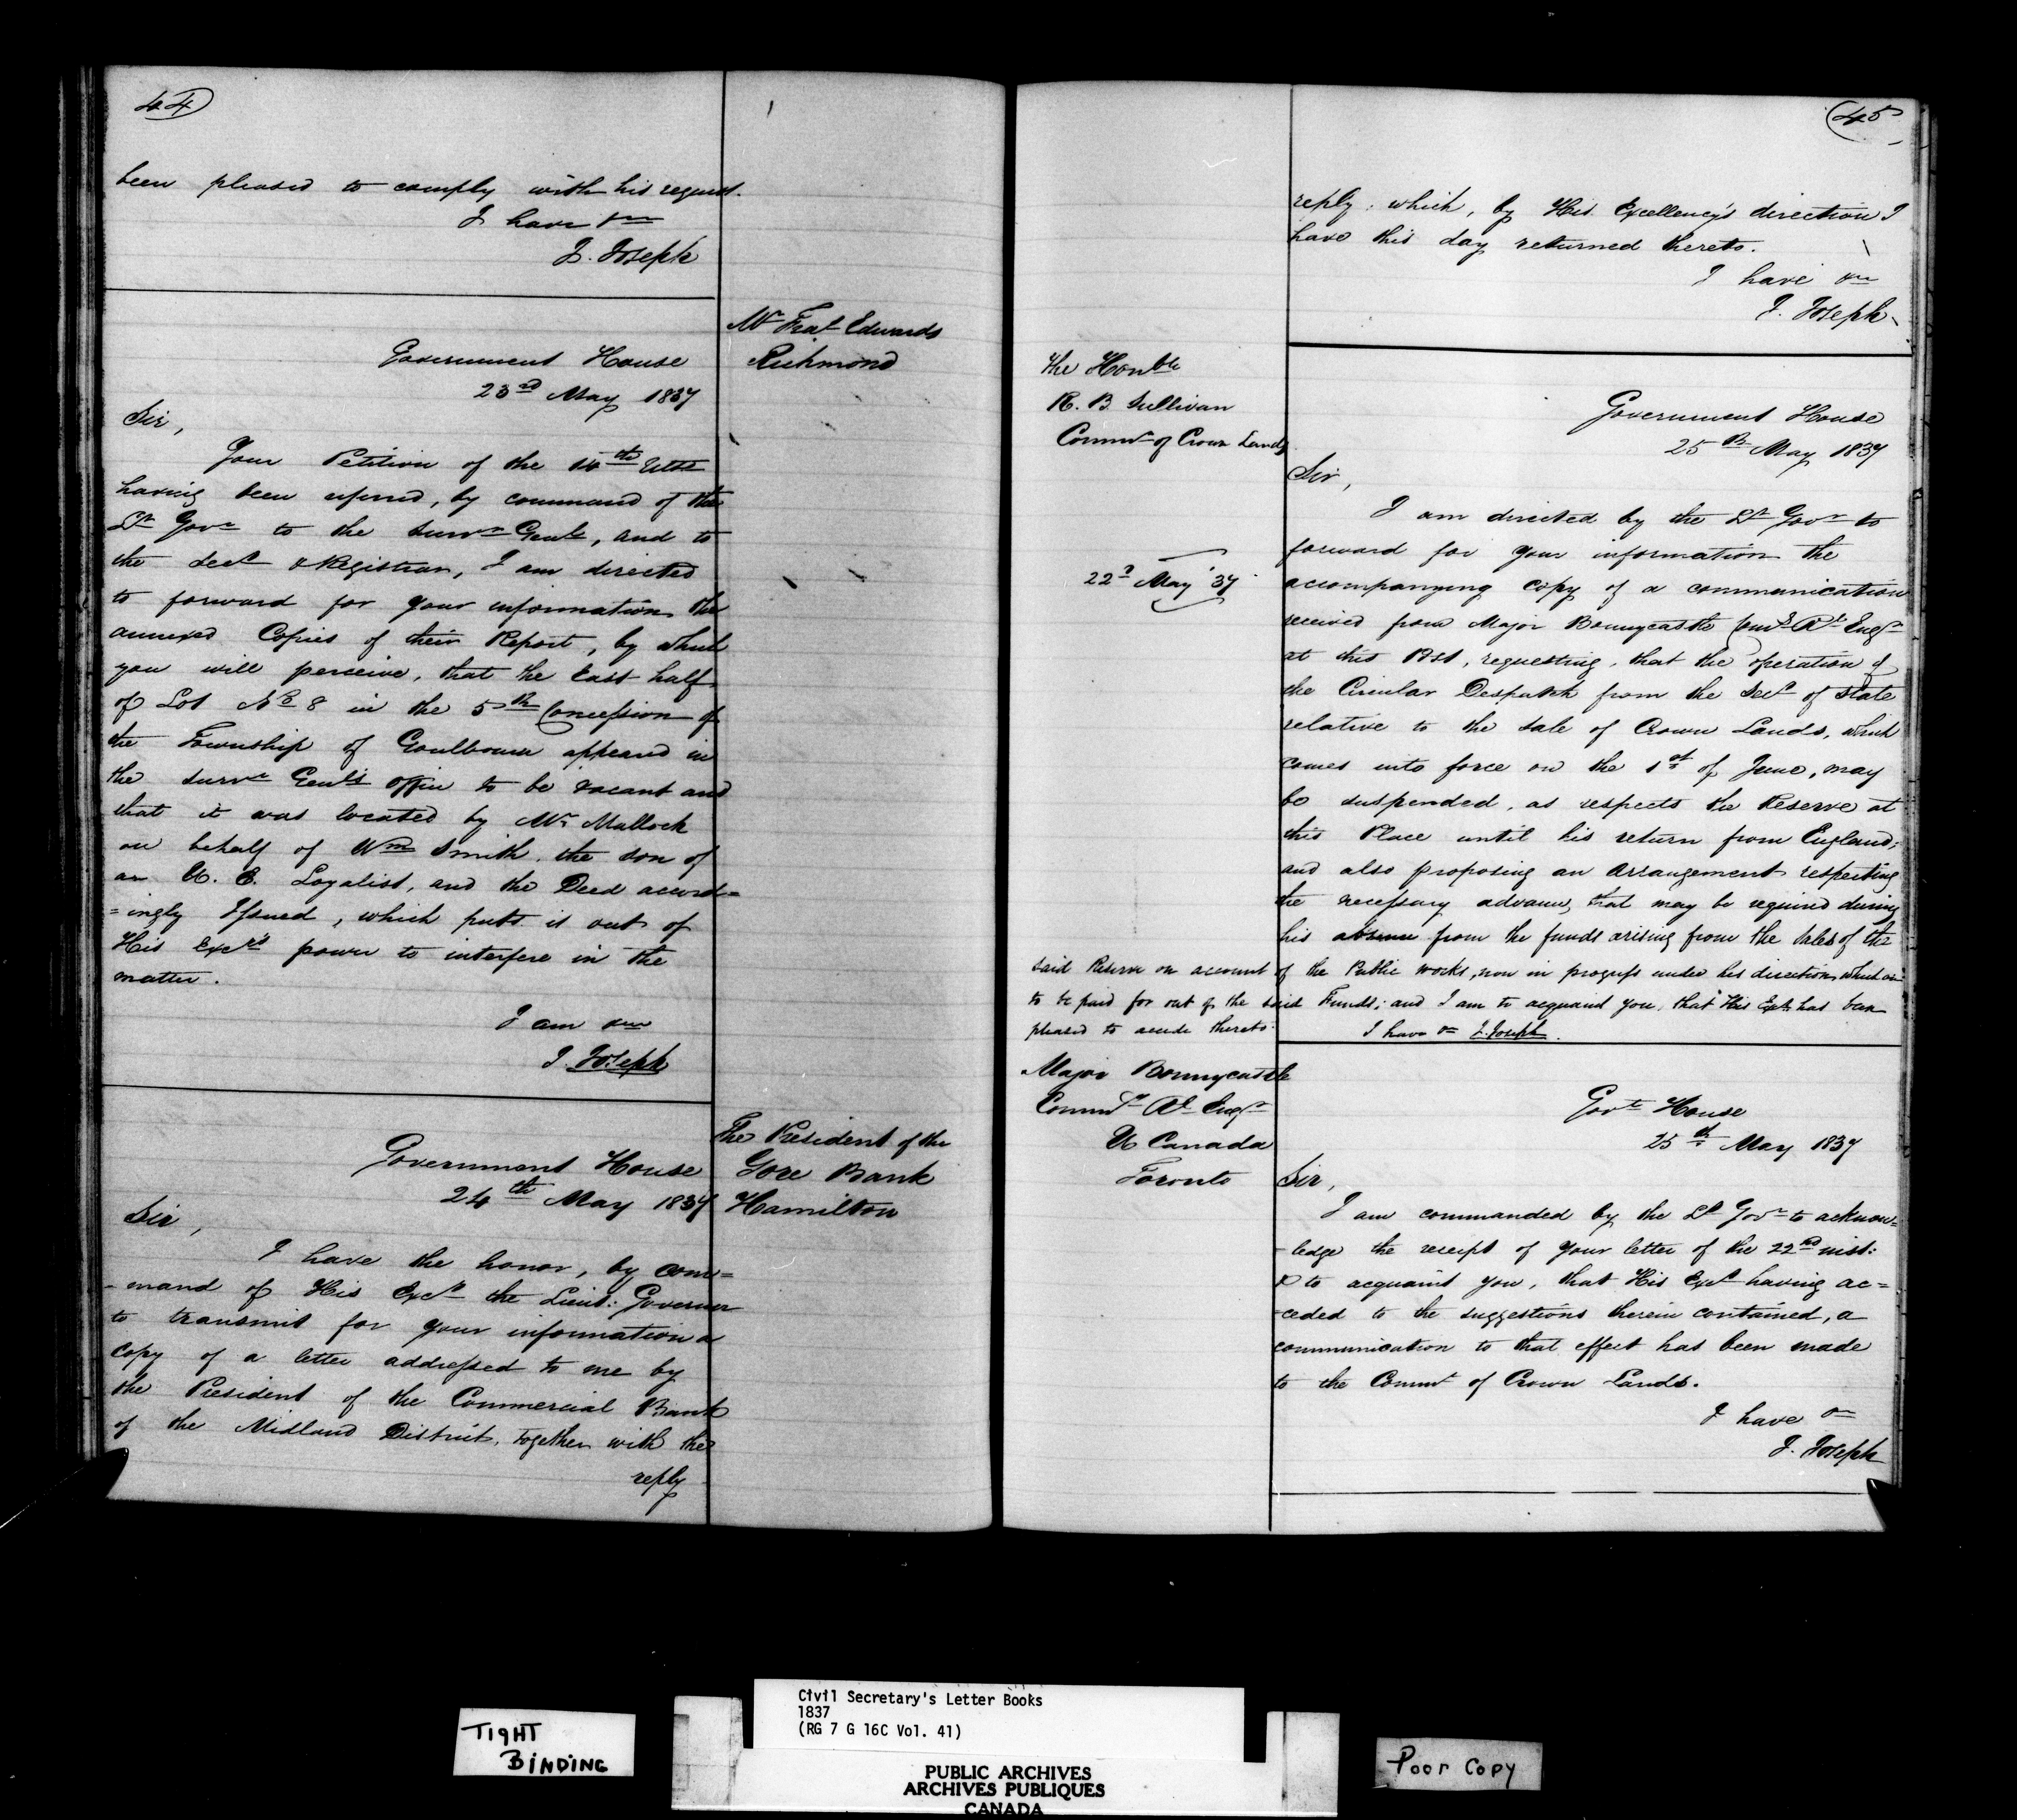 44
been pleased to comply with his request.
I have &c
J. Joseph
Mr Feat Edwards
Richmond
Government House
23rd May 1837
Sir,
Your Petition of the 14th Ulto
having been referred, by command of the
Lt Govr to the Survr Genl, and to
the Secy & Registrar, I am directed
to forward for your information the
annexed Copies of their Report, by which
you will perceive, that the East half
of Lot No 8 in the 5th Concession of
the Township of Goulbourn appeared in
the Survr Genl's Office to be vacant and
that it was located by Mr Mallock
on behalf of Wm Smith, the son of
an U. E. Loyalist, and the Deed accord=
=ingly Issued, which puts it out of
His Excy's power to interfere in the
matter.
I am &c
J. Joseph
The President of the
Gore Bank
Hamilton
Government House
24th May 1837
Sir,
I have the honor, by com=
=mand of His Excy the Lieut: Governor
to transmit for your information a
copy of a letter addressed to me by
the President of the Commercial Bank
of the Midland District, together with the
reply
45
reply, which, by His Excellency's direction I
have this day returned thereto.
I have &c
J. Joseph
The Honble
R. B. Sullivan
Commr of Crown Lands
Government House
25th May 1837
Sir,
22d May '37
I am directed by the Lt Govr to
forward for your information the
accompanying copy of a communication
received from Major Bonnycastle Comg Rl Engr
at this Post, requesting, that the operation of
the Circular Despatch from the Secy of State
relative to the sale of Crown Lands, which
comes into force on the 1st of June, may
be suspended, as respects the Reserve at
this Place until his return from England;
and also proposing an arrangement respecting
the necessary advances, that may be required during
his absence from the funds arising from the sales of the
said Reserve on account of the Public works, now in progress under his direction, which are
to be paid for out of the said Funds; and I am to acquaint you, that His Excy has been
pleased to accede thereto.
I have &c J. Joseph.
Major Bonnycastle
Commg Rl Engr
U Canada
Toronto
Govt House
25th May 1837
Sir,
I am commanded by the Lt Govr to acknow=
=ledge the receipt of your letter of the 22nd inst:
& to acquaint you, that His Excy having ac=
=ceded to the suggestions therein contained, a
communication to that effect has been made
to the Commr of Crown Lands.
I have &c
J. Joseph
TIGHT
BINDING
Civil Secretary's Letter Books
1837
(RG 7 G 16C Vol. 41)
PUBLIC ARCHIVES
ARCHIVES PUBLIQUES
CANADA
Poor Copy